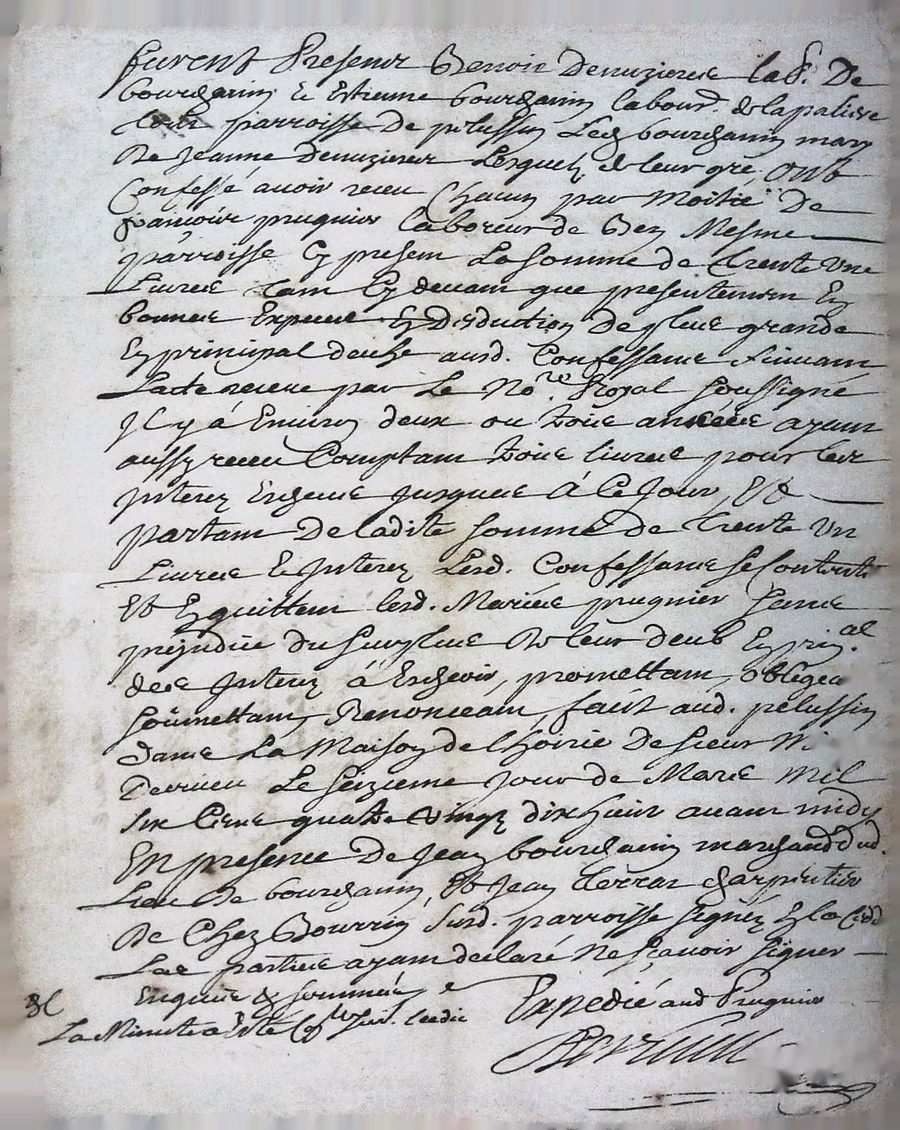 furent Presens Benoit Denuzieres la P. De
bourchanin & Estienne bourchanin labour. de la paliere
parroisse De pelussin Led bourchanin mary
De Jeanne Denuzieres Lesquelz de leur gré ont
Confessé avoir receu Chacun par Moitié De
francois prugnier laboreur de Mesme
parroisse Cy present La Somme de trente une
Livres tant Cy devant que presentement En
bonnes Especes En Deduction De plus grande
En principal deuhe ausd. Confessants suivant
Lacte receu par Le No.re Royal Soussigné
Il y à Environ deux ou trois années ayant
aussy receu Comptant trois livres pour les
Interez Escheus Jusques à Ce Jour, Et
partant De Ladite Somme De trente Un
Livres & Interez Lesd. Confessants Se Contentent
Et En quittent led. prugnier Sans
prejudice du Surplus De leur deub En prin.al
des Interez à Escheoir, promettant, obligeant
Soûmettant, Renonceant, fait aud. pelussin
dans La Maison de lhoirie De Sieur
Devrieu Le Seizieme Jour de Mars Mil
Six Cens quatre Vingz dix huit avant midy
En presence De Jean bourchanin marchand dud.
Lieu De bourchanin, Et Jean terras charpentier
De Chez Bourrin Susd. parroisse Signéz En la Cedde
Les parties ayant declaré Ne Sçavoir Signer
Enquis & Sommés
La Minute a Esté
Expedié aud Prugnier